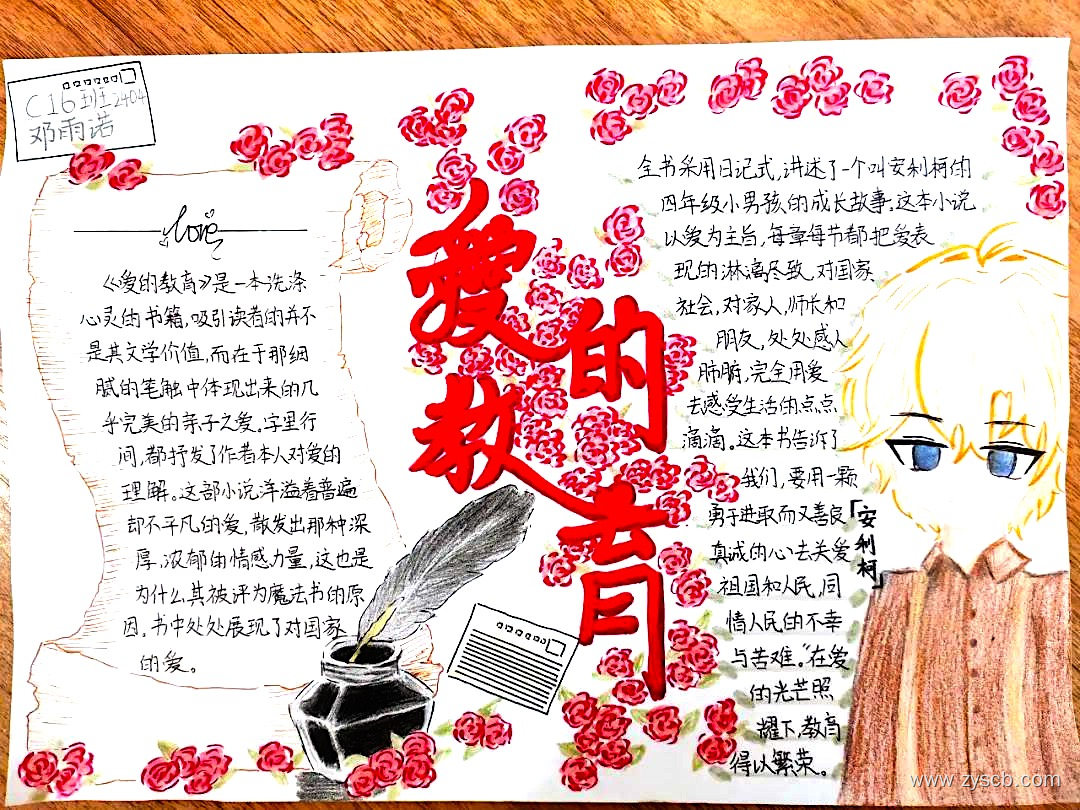 C16班2404
邓雨诺
love
《爱的教育》是一本洗涤
心灵的书籍,吸引读者的并不
是其文学价值,而在于那细
腻的笔触中体现出来的几
乎完美的亲子之爱。字里行
间,都抒发了作者本人对爱的
理解。这部小说洋溢着普遍
却不平凡的爱,散发出那种深
厚、浓郁的情感力量,这也是
为什么其被评为魔法书的原
因。书中处处展现了对国家
的爱。
爱的教育
全书采用日记式,讲述了一个叫安利柯的
四年级小男孩的成长故事。这本小说
以爱为主旨,每章每节都把爱表
现的淋漓尽致,对国家
社会,对家人,师长和
朋友,处处感人
肺腑,完全用爱
去感受生活的点点
滴滴。这本书告诉了
我们,要用一颗
勇于进取而又善良
真诚的心去关爱
祖国和人民,同
情人民的不幸
与苦难。"在爱
的光芒照
耀下,教育
得以繁荣。
「安利柯」
www.zyscb.com